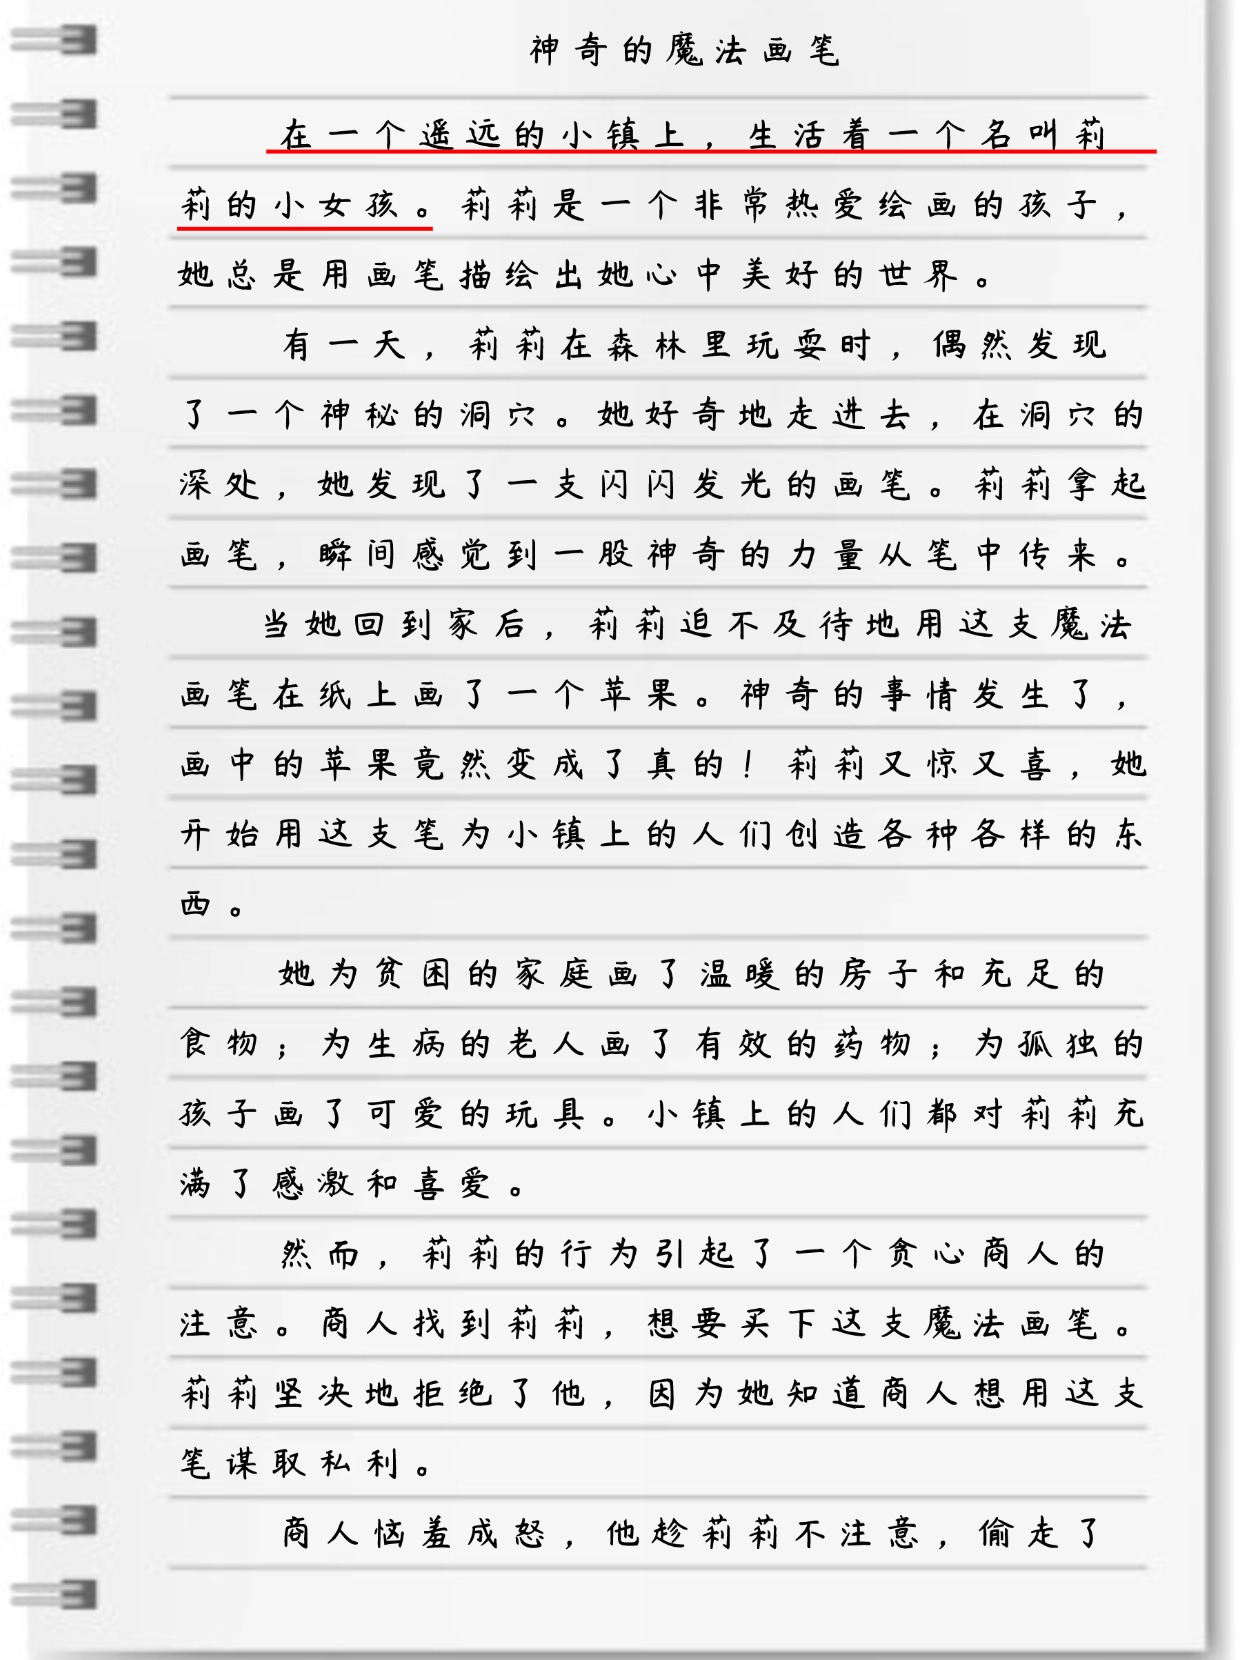 神奇的魔法画笔
在一个遥远的小镇上，生活着一个名叫莉
莉的小女孩。莉莉是一个非常热爱绘画的孩子，
她总是用画笔描绘出她心中美好的世界。
有一天，莉莉在森林里玩耍时，偶然发现
了一个神秘的洞穴。她好奇地走进去，在洞穴的
深处，她发现了一支闪闪发光的画笔。莉莉拿起
画笔，瞬间感觉到一股神奇的力量从笔中传来。
当她回到家后，莉莉迫不及待地用这支魔法
画笔在纸上画了一个苹果。神奇的事情发生了，
画中的苹果竟然变成了真的！莉莉又惊又喜，她
开始用这支笔为小镇上的人们创造各种各样的东
西。
她为贫困的家庭画了温暖的房子和充足的
食物；为生病的老人画了有效的药物；为孤独的
孩子画了可爱的玩具。小镇上的人们都对莉莉充
满了感激和喜爱。
然而，莉莉的行为引起了一个贪心商人的
注意。商人找到莉莉，想要买下这支魔法画笔。
莉莉坚决地拒绝了他，因为她知道商人想用这支
笔谋取私利。
商人恼羞成怒，他趁莉莉不注意，偷走了